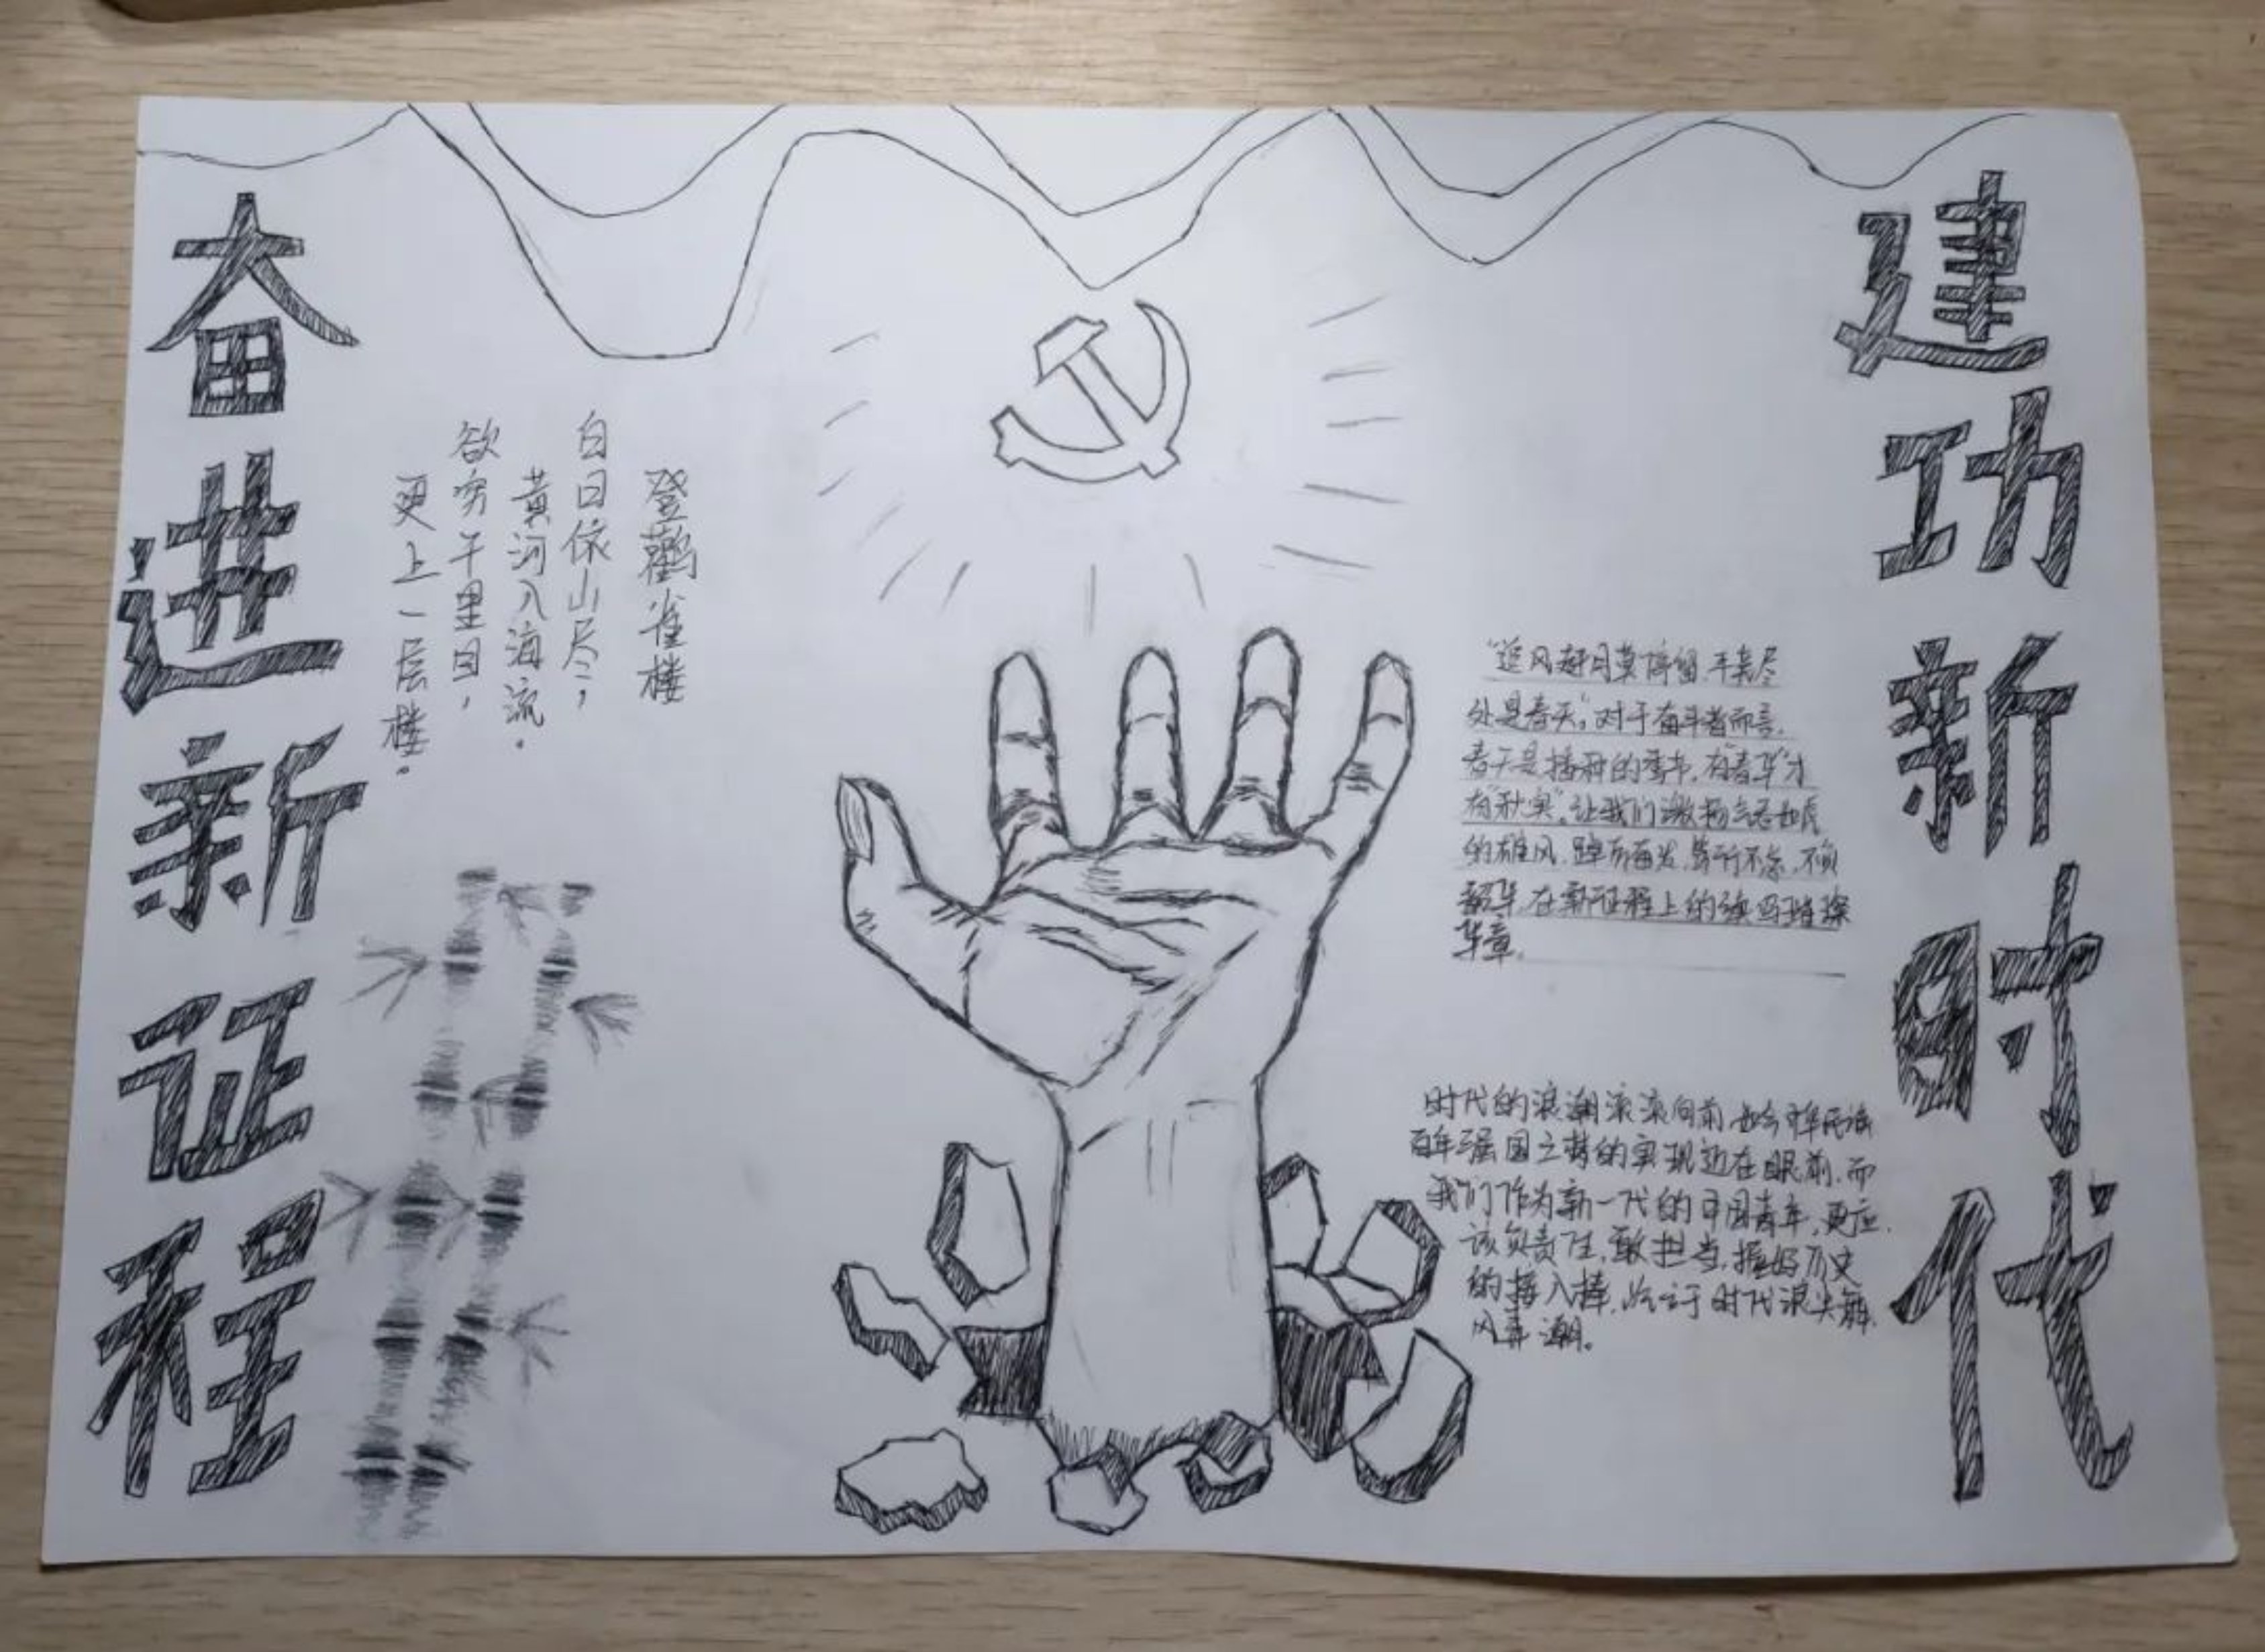 奋进新征程
登鹳雀楼
白日依山尽，
黄河入海流。
欲穷千里目，
更上一层楼。
建功新时代
“追风赶月莫停留，平芜尽
处是春天。”对于奋斗者而言，
春天是播种的季节，有“春华”才
有“秋实”。让我们激扬气吞如虎
的雄风，踔厉奋发，笃行不怠，不负
韶华，在新征程上的续写璀璨
华章。
时代的浪潮滚滚向前，如今中华民族
百年强国之梦的实现近在眼前，而
我们作为新一代的中国青年，更应
该负责任，敢担当，握好历史
的接入棒，于时代浪尖舞
风弄潮。